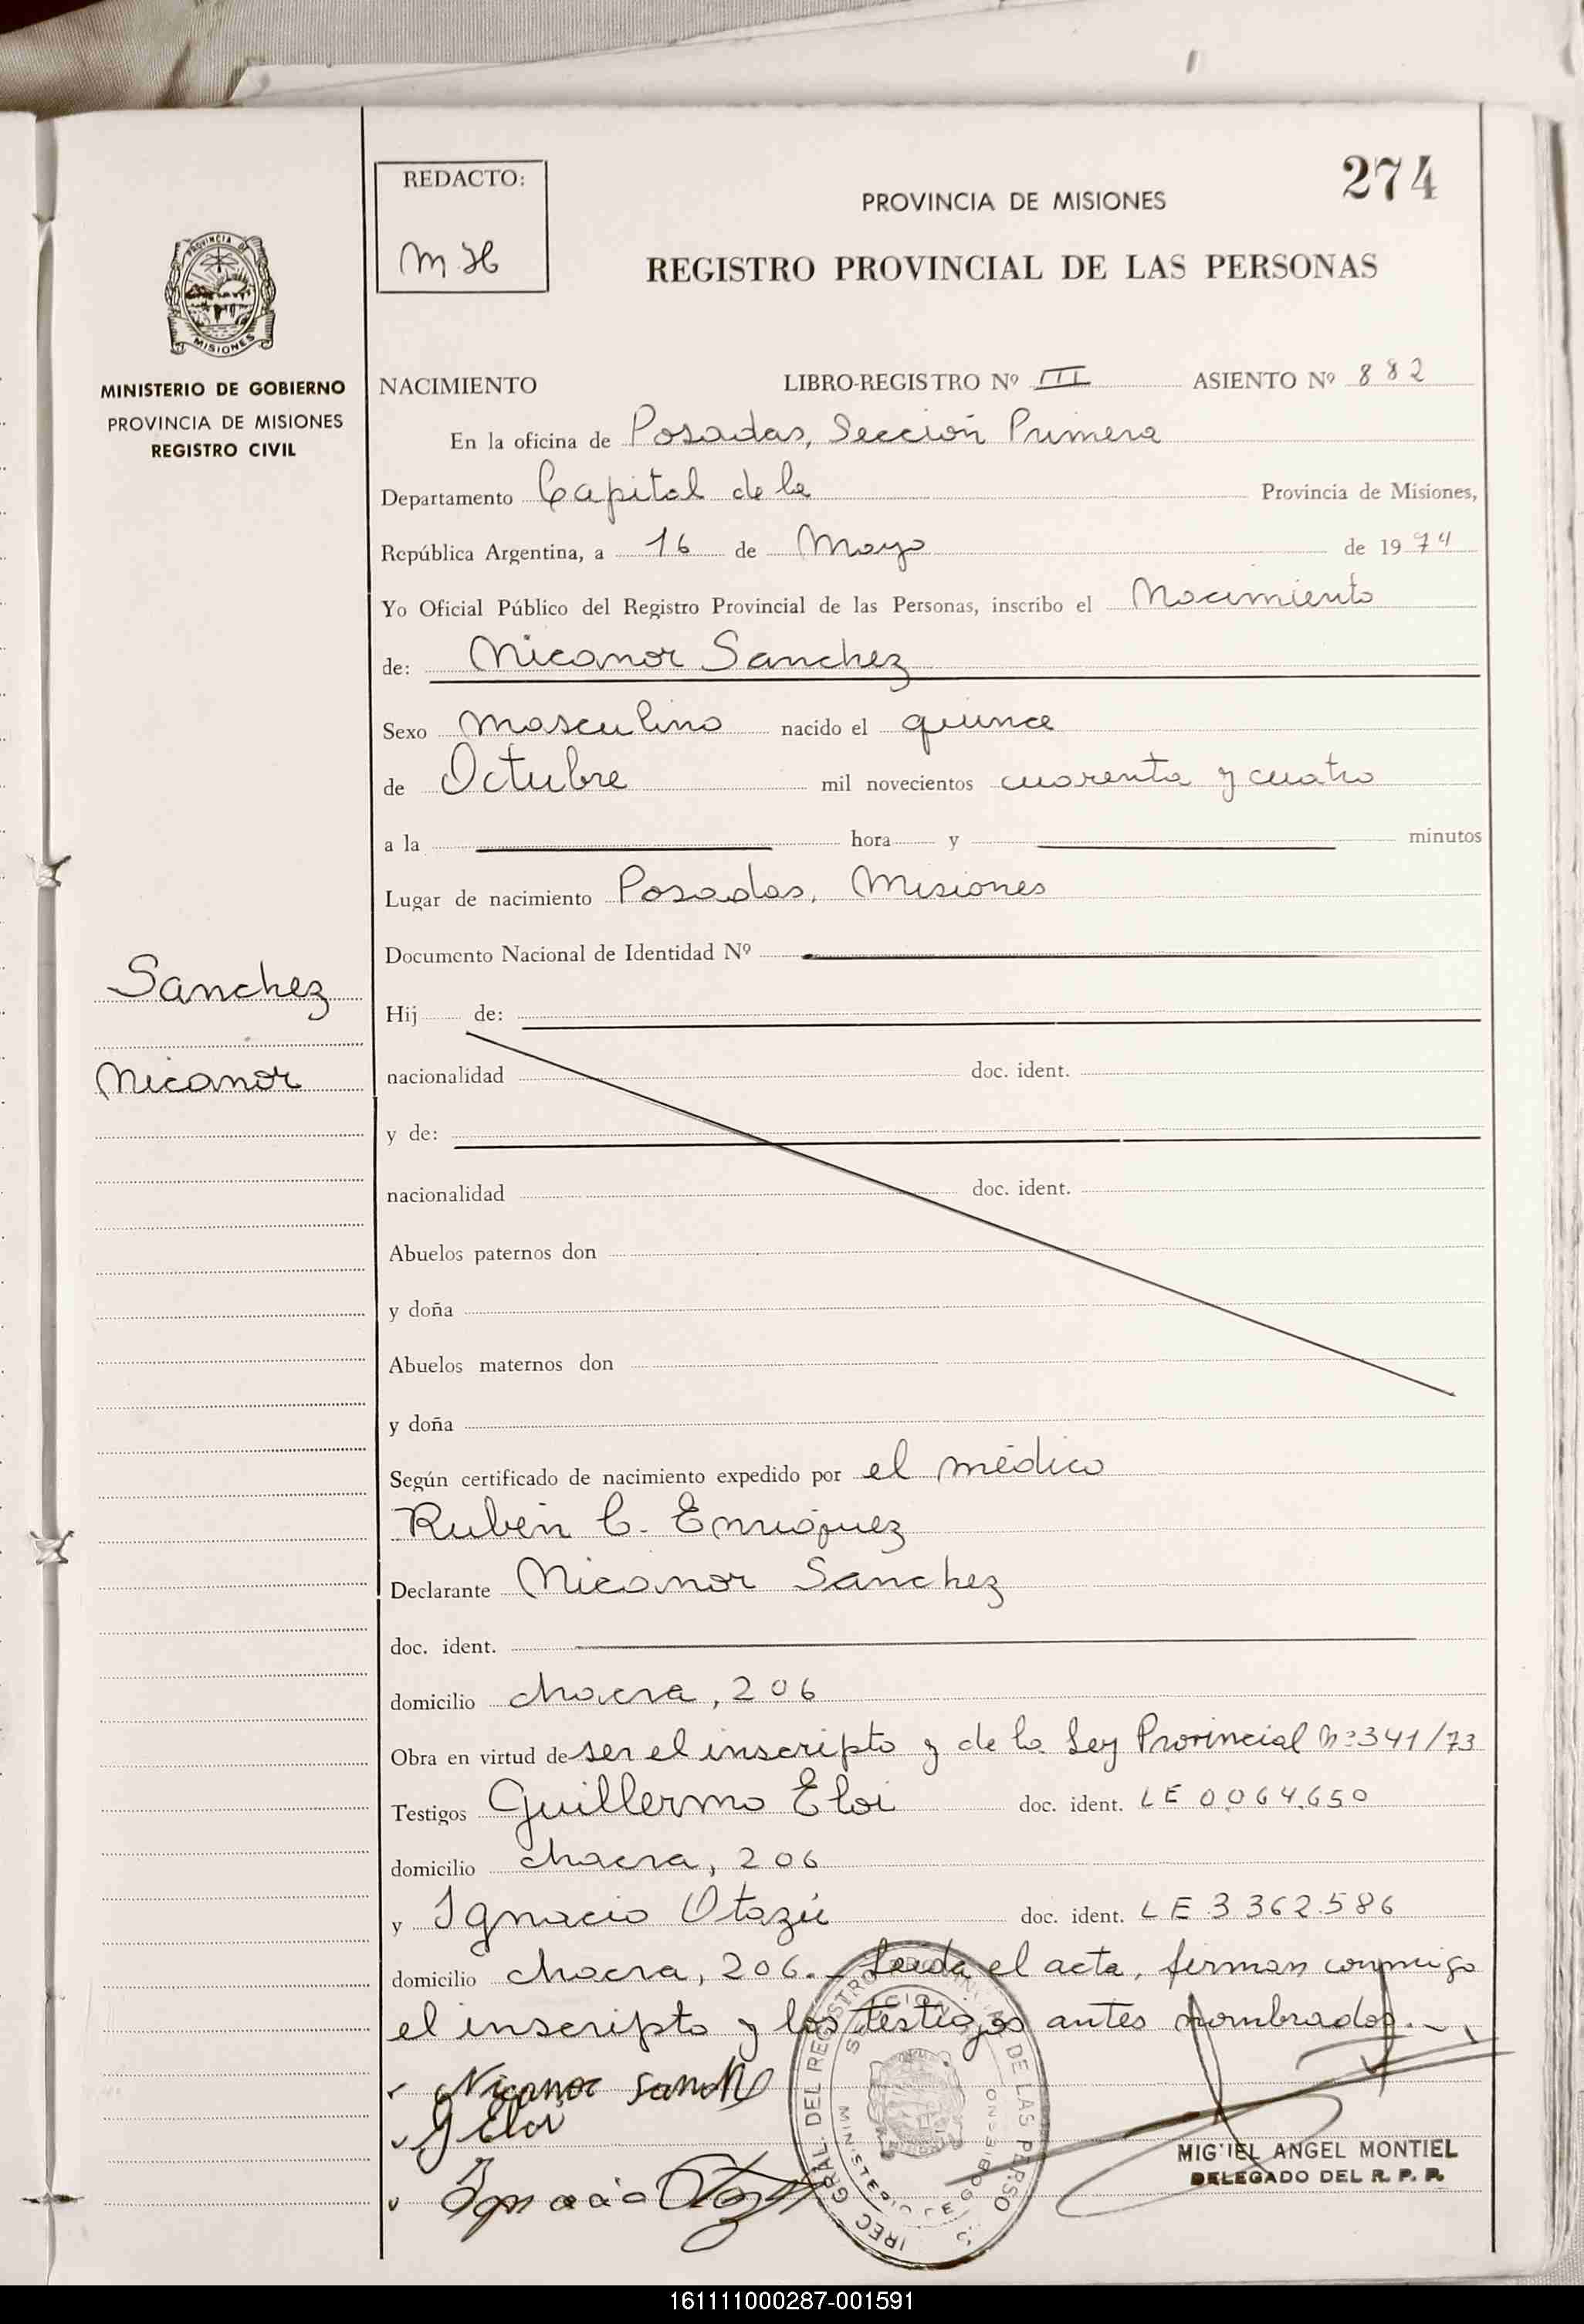 274
REDACTO:
M H
PROVINCIA DE MISIONES
REGISTRO PROVINCIAL DE LAS PERSONAS
PROVINCIA DE
MISIONES
MINISTERIO DE GOBIERNO
PROVINCIA DE MISIONES
REGISTRO CIVIL
NACIMIENTO LIBRO-REGISTRO Nº III ASIENTO Nº 882
En la oficina de Posadas, Sección Primera
Departamento Capital de la Provincia de Misiones,
República Argentina, a 16 de Mayo de 1974
Yo Oficial Público del Registro Provincial de las Personas, inscribo el Nacimiento
de: Nicanor Sanchez
Sexo masculino nacido el quince
de Octubre mil novecientos cuarenta y cuatro
a la hora y minutos
Lugar de nacimiento Posadas, Misiones
Documento Nacional de Identidad Nº
Sanchez
Nicanor
Hij de:
nacionalidad doc. ident.
y de:
nacionalidad doc. ident.
Abuelos paternos don
y doña
Abuelos maternos don
y doña
Según certificado de nacimiento expedido por el médico
Rubén C. Enriquez
Declarante Nicanor Sanchez
doc. ident.
domicilio chacra, 206
Obra en virtud de ser el inscripto y de la Ley Provincial Nº 341/73
Testigos Guillermo Eloi doc. ident. LE 0064.650
domicilio chacra, 206
y Ignacio Otazú doc. ident. LE 3362.586
domicilio chacra, 206.- Leída el acta, firman conmigo
el inscripto y los testigos antes nombrados.-
Nicanor Sanch
G Eloi
Ignacio Otaz
MIGUEL ANGEL MONTIEL
DELEGADO DEL R. P. P.
161111000287-001591